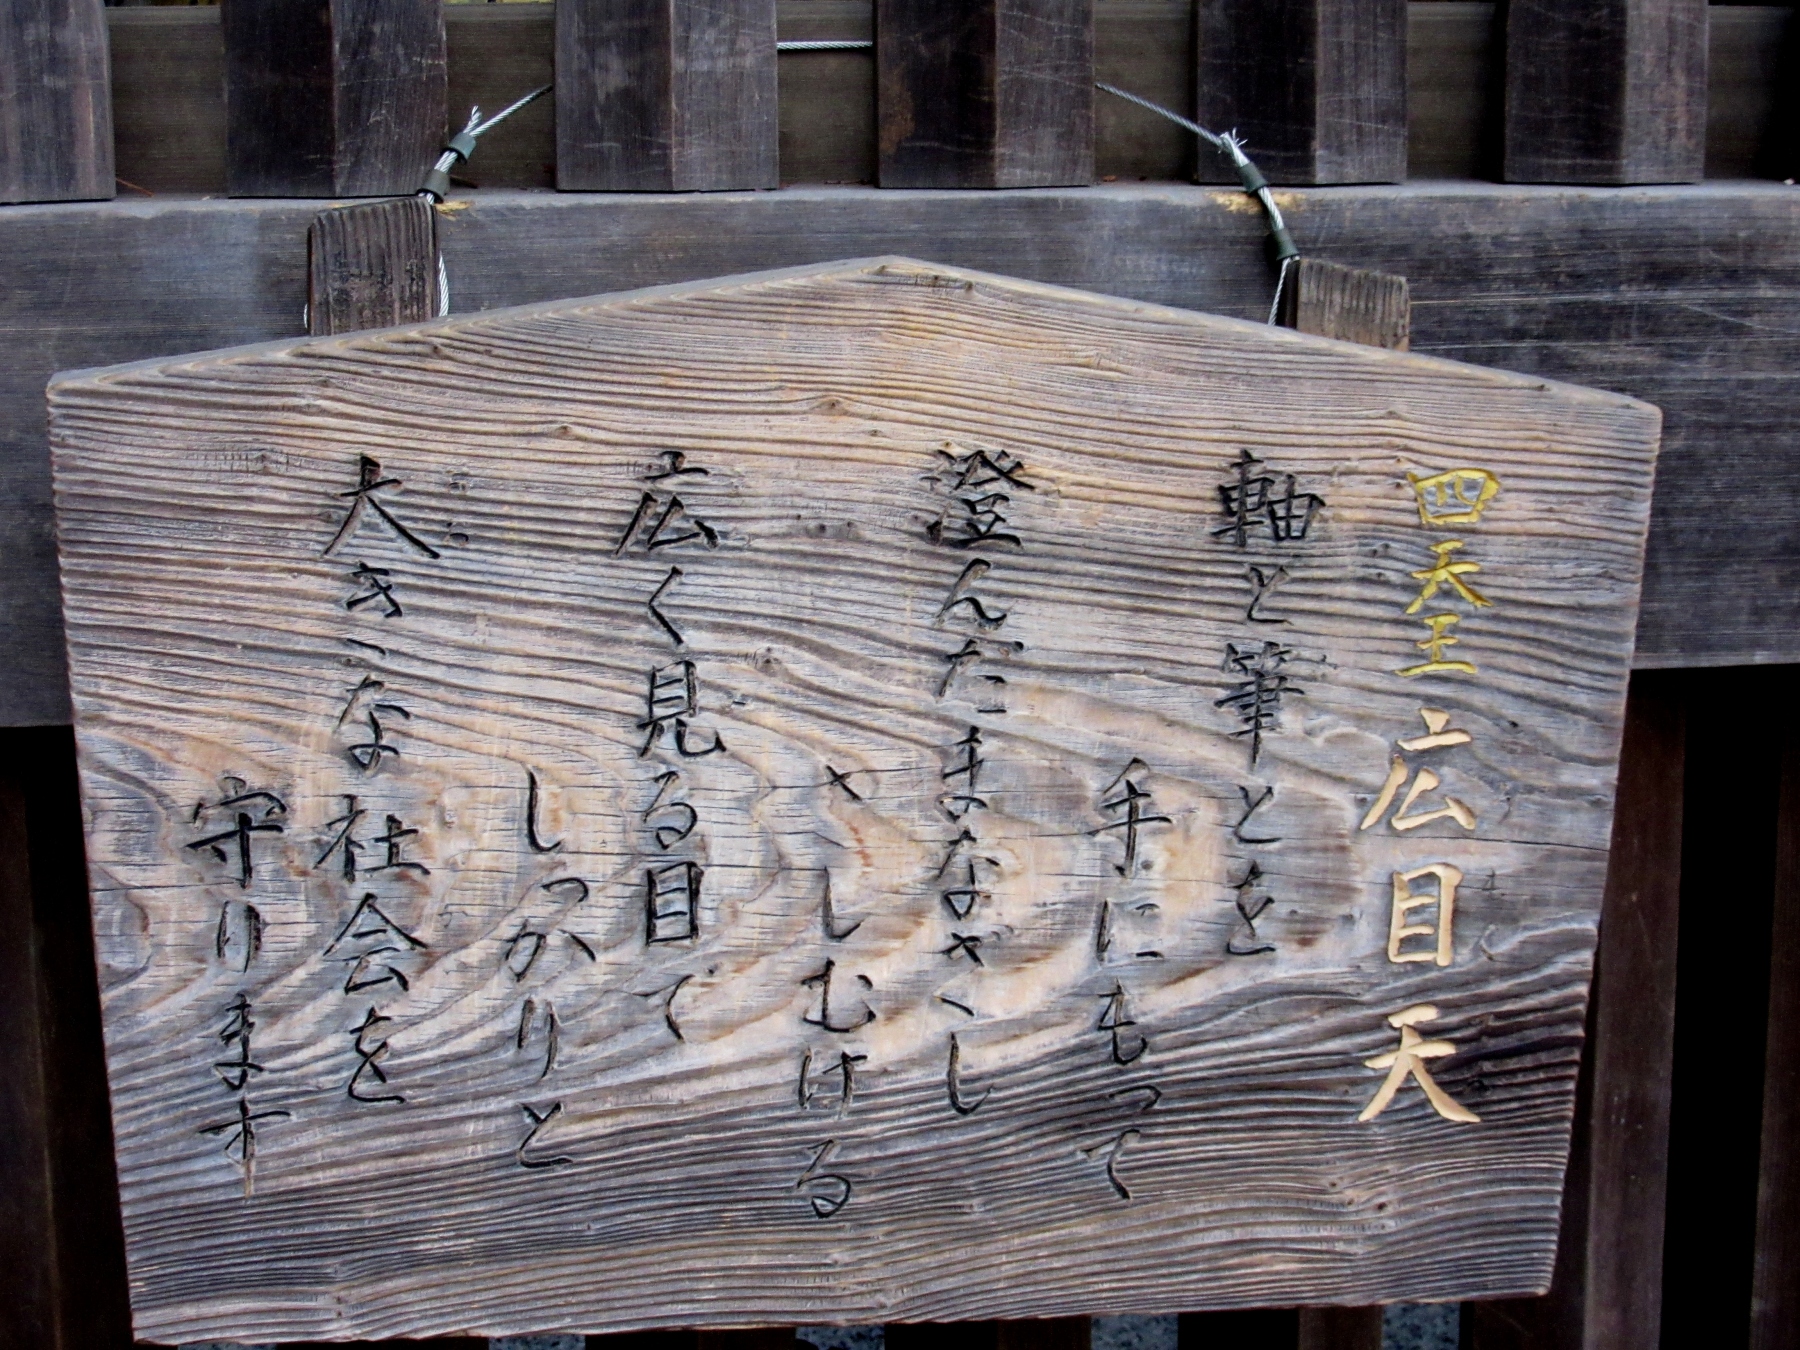 四天王 広目天
軸と筆とを
手にもって
澄んだまなざし
さしむける
広く見る目で
しっかりと
大きな社会を
守ります